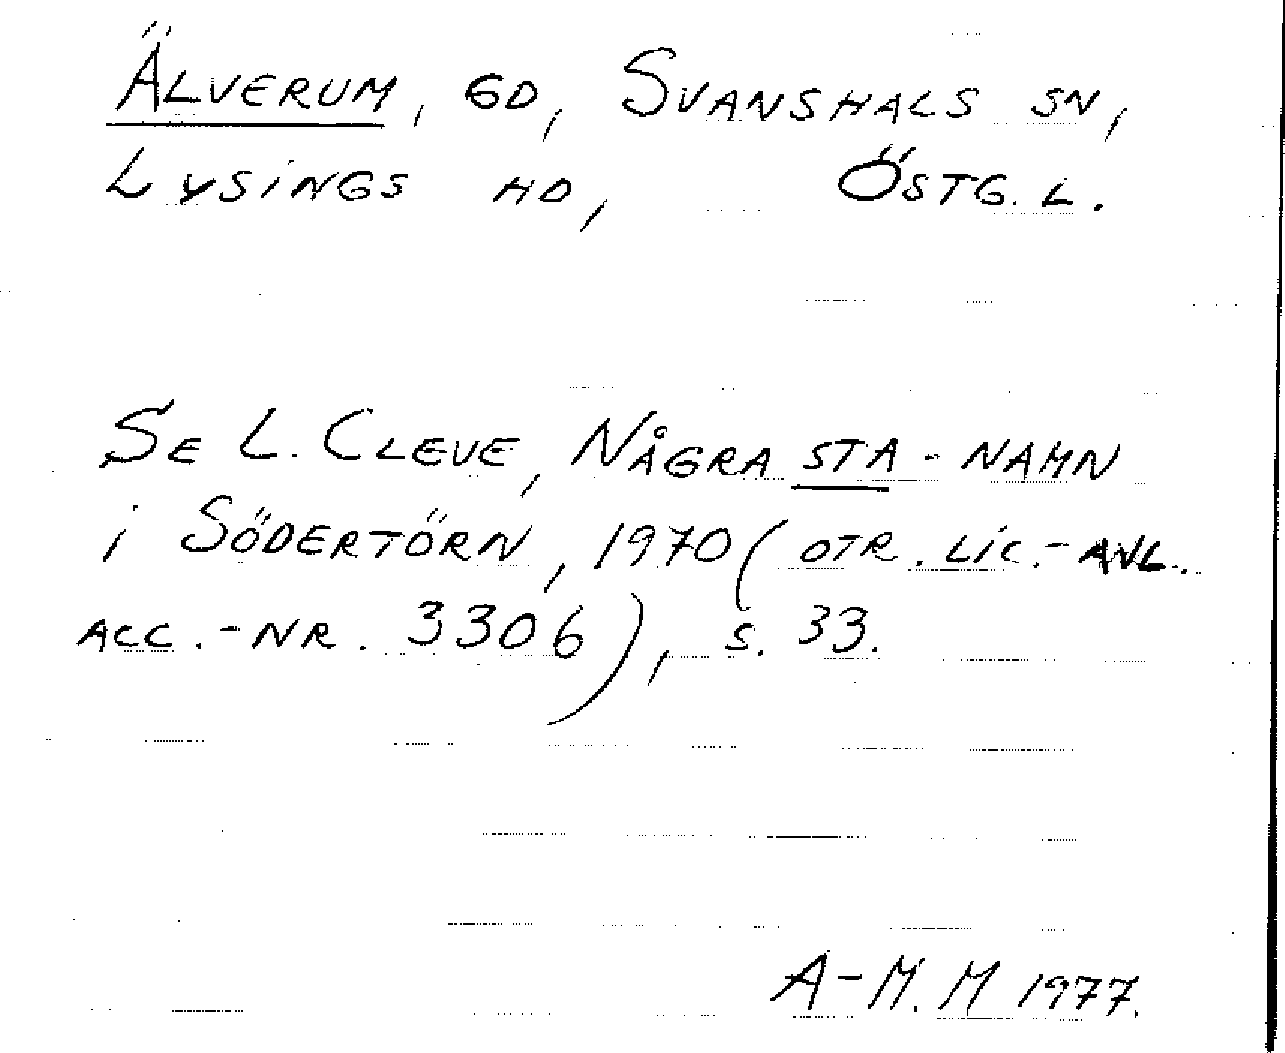 Älverum, gd, Svanshals sn,
Lysings hd, Östg. l.
Se L. Cleve, Några sta-namn
i Södertörn, 1970 (otr. lic.-avl.
acc.-nr. 3306), s. 33.
A-M. M 1977.